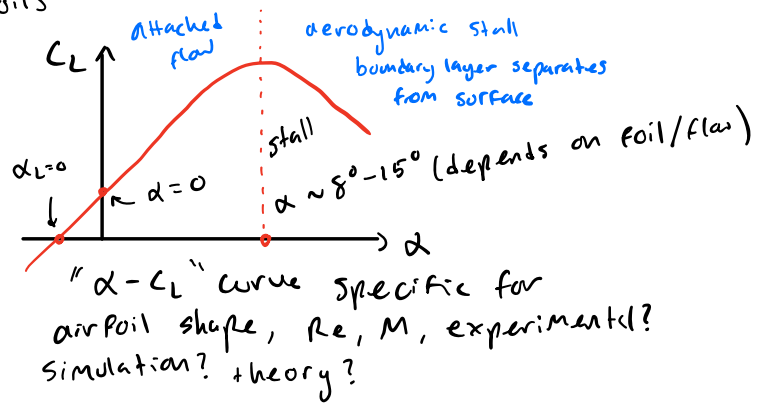 attached
flow
aerodynamic stall
boundary layer separates
from surface
C_L
α_L=0
α = 0
stall
α ~ 8° - 15° (depends on foil/flow)
α
"α - C_L" curve specific for
airfoil shape, Re, M, experimental?
simulation? theory?